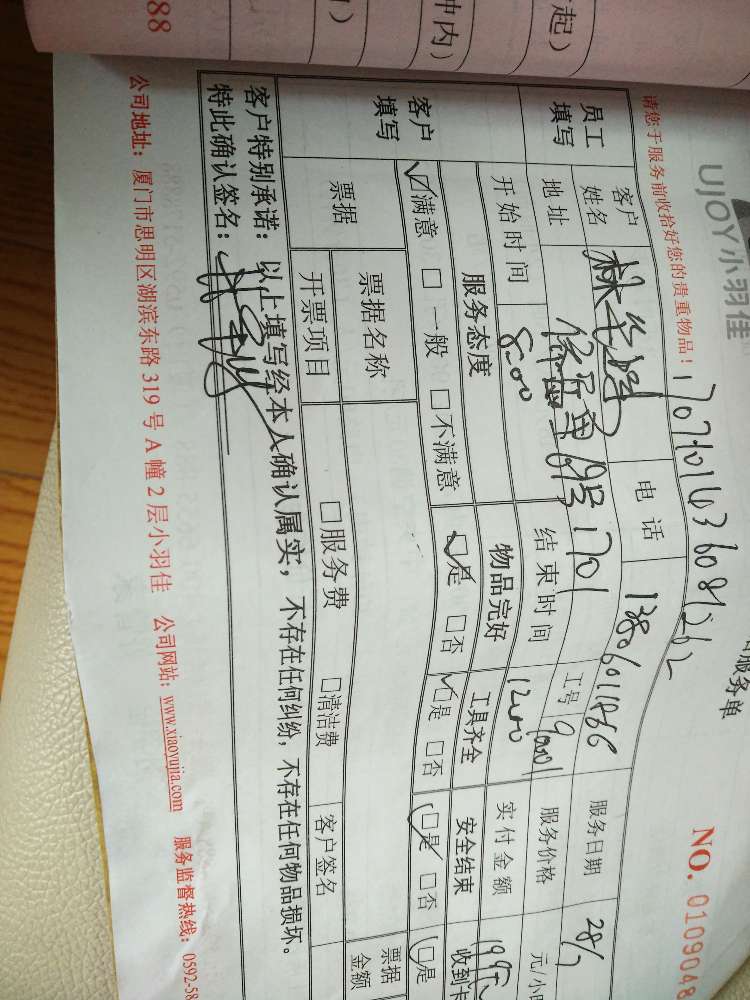 88
中内）
起）
UJOY小羽佳
服务单
请您于服务前收拾好您的贵重物品！
NO. 0109048
员工填写
客户姓名
电话
服务日期 28/7
地址
工号
服务价格
元/小
开始时间 8:00
结束时间 12:00
实付金额
客户填写
服务态度
物品完好
工具齐全
安全结束
收到卡
☑满意 □一般 □不满意
☑是 □否
☑是 □否
☑是 □否
□是
票据
票据名称
票据金额
开票项目
□服务费 □清洁费
客户签名
客户特别承诺：以上填写经本人确认属实，不存在任何纠纷，不存在任何物品损坏。
特此确认签名：
公司地址：厦门市思明区湖滨东路 319 号 A 幢 2 层小羽佳 公司网站：www.xiaoyujia.com 服务监督热线：0592-58